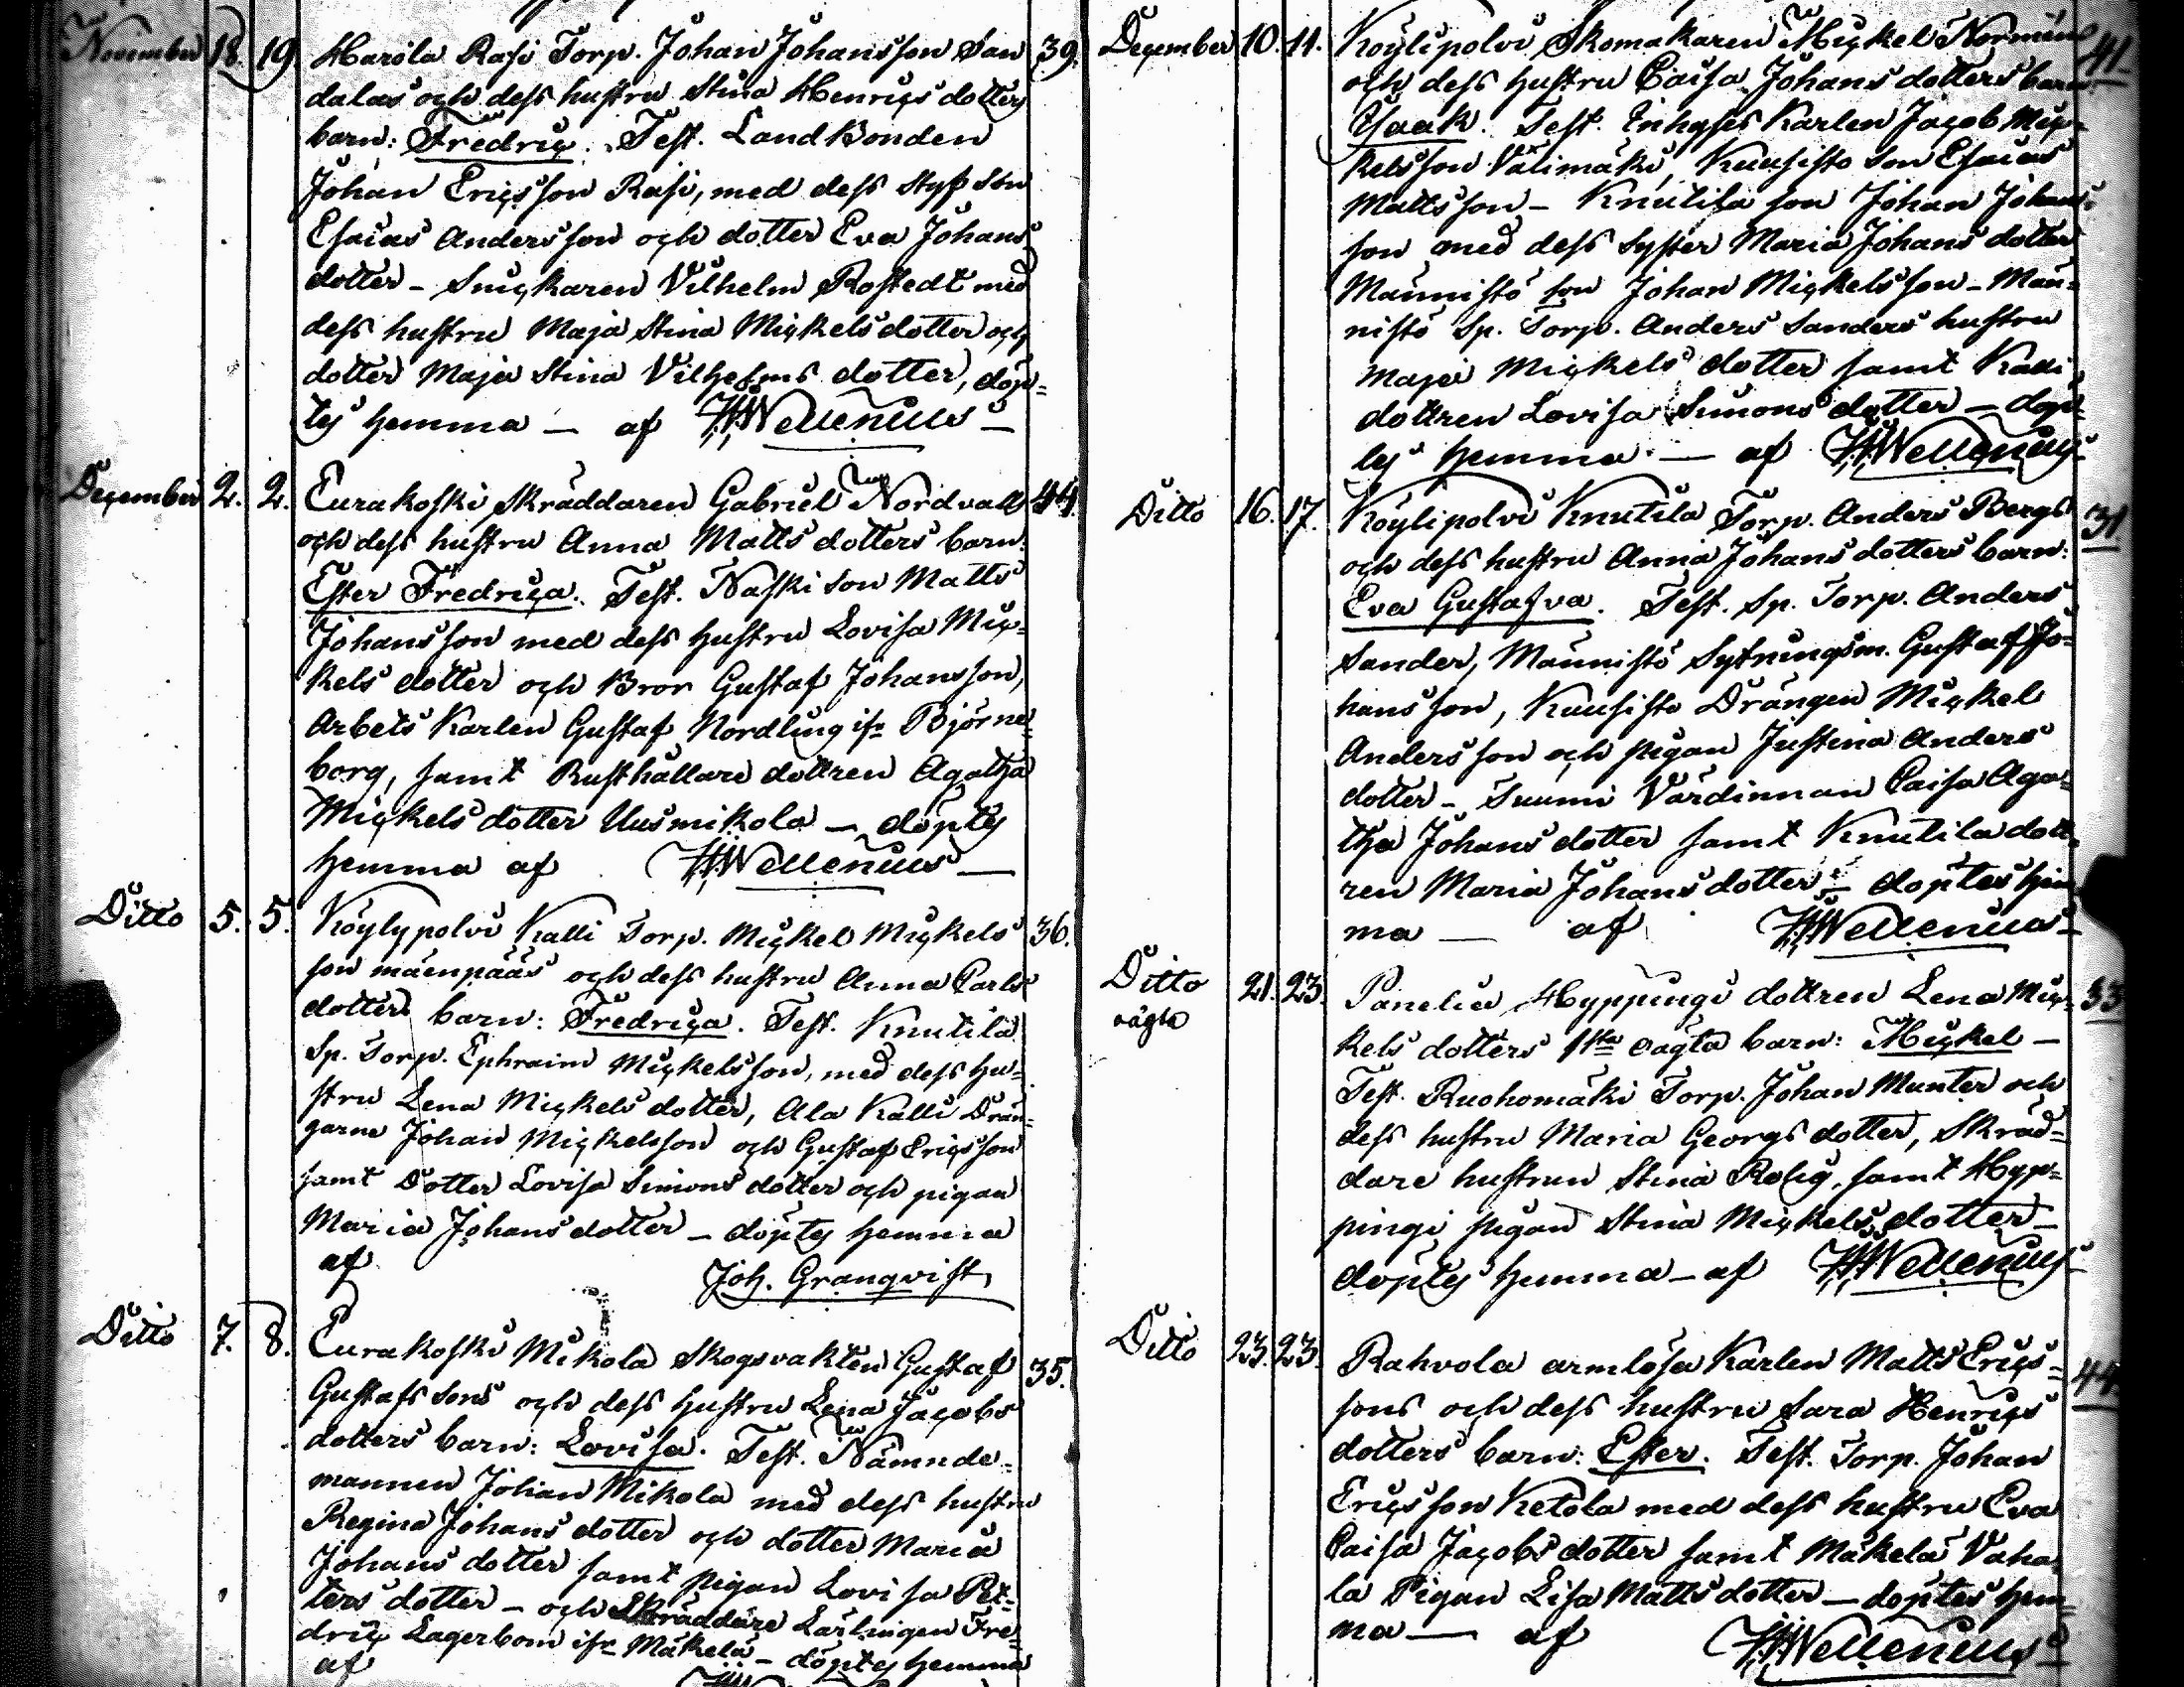 November 18. 19. Harola Rasi Torp. Johan Johansson San 39.
dalas och dess hustru Stina Henrics dotters
barn: Fredric. Test. Landbonden
Johan Ericsson Rasi, med dess styfson
Esaias Andersson och dotter Eva Johans
dotter – Snickaren Vilhelm Rostedt med
dess hustru Maja Stina Mickelsdotter och
dotter Maja Stina Vilhelms dotter, döp=
tes hemma — af Wellenius
December 2. 2. Eurakoski Skräddaren Gabriel Nordvalls 44.
och dess hustru Anna Matts dotters barn:
Ester Fredrica. Test. Naski son Matts
Johansson med dess hustru Lovisa Mic=
kels dotter och Bror Gustaf Johansson,
Arbets Karlen Gustaf Nordling ifr. Björne
borg, samt Rusthållare dottren Agatha
Mickels dotter Uusmikola — döptes
hemma af Wellenius
Ditto 5. 5. Köylypolvi Kalli Torp. Mickel Mickels 36.
son Mäenpääs och dess hustru Anna Carls
dotters barn: Fredrica. Test. Knutila
Sp. Torp. Ephraim Mickelsson, med dess hu=
stru Lena Mickels dotter, Ala Kalli Drän=
garne Johan Mickelsson och Gustaf Ericsson
samt Dotter Lovisa Simons dotter och pigan
Maria Johansdotter — döptes hemma
af Joh. Granqvist
Ditto 7. 8. Eurakoski Mikola Skogsvakten Gustaf 35.
Gustafssons och dess hustru Lena Jacobs
dotters barn: Lovisa. Test. Nämnde=
mannen Johan Mikola med dess hustru
Regina Johans dotter och dotter Maria
Johans dotter samt pigan Lovisa Pet=
ters dotter – och Skräddare Lärlingen Fre=
dric Lagerbom ifr. Mäkelä – döptes hemma
af
December 10. 11. Köylipolvi Skomakaren Mickel Normans 41.
och dess hustru Caisa Johans dotters barn
Esaak. Test. Inhyses Karlen Jacob Mic=
kelsson Välimäki, Kuusisto son Esaias
Mattsson – Knutila son Johan Johans
son med dess syster Maria Johans dotter
Männistö son Johan Mickelsson – Män=
nistö Sp. Torp. Anders Sanders hustru
Maja Mickels dotter samt Kalli
dottren Lovisa Simons dotter – döp=
tes hemma — af Wellenius
Ditto 16. 17. Köylipolvi Knutila Torp. Anders Bergs 31.
och dess hustru Anna Johans dotters barn:
Eva Gustafva. Test. Sp. Torp. Anders
Sander, Männistö Sytningsm. Gustaf Jo=
hansson, Kuusisto Drängen Mickel
Andersson och pigan Justina Anders
dotter – Suumi Värdinnan Caisa Aga=
tha Johans dotter samt Knutila dott=
ren Maria Johansdotter – döptes hem
ma — af Wellenius
Ditto 21. 23. Panelia Hyppingi dottren Lena Mic= 33
oägta kels dotters 1sta oägta barn: Mickel —
Test. Ruohomäki Torp. Johan Munter och
dess hustru Maria Georgs dotter, Skräd=
dare hustrun Stina Rolig, samt Hyp=
pingi pigan Stina Mickels dotter –
döptes hemma – af Wellenius
Ditto 23. 23. Rahvola armlösa Karlen Matts Erics= 44
sons och dess hustru Sara Henrics
dotters barn: Ester. Test. Torp. Johan
Ericsson Ketola med dess hustru Eva
Caisa Jacobs dotter samt Mäkelä Vaha
la Pigan Lisa Matts dotter – döptes hem=
ma — af Wellenius